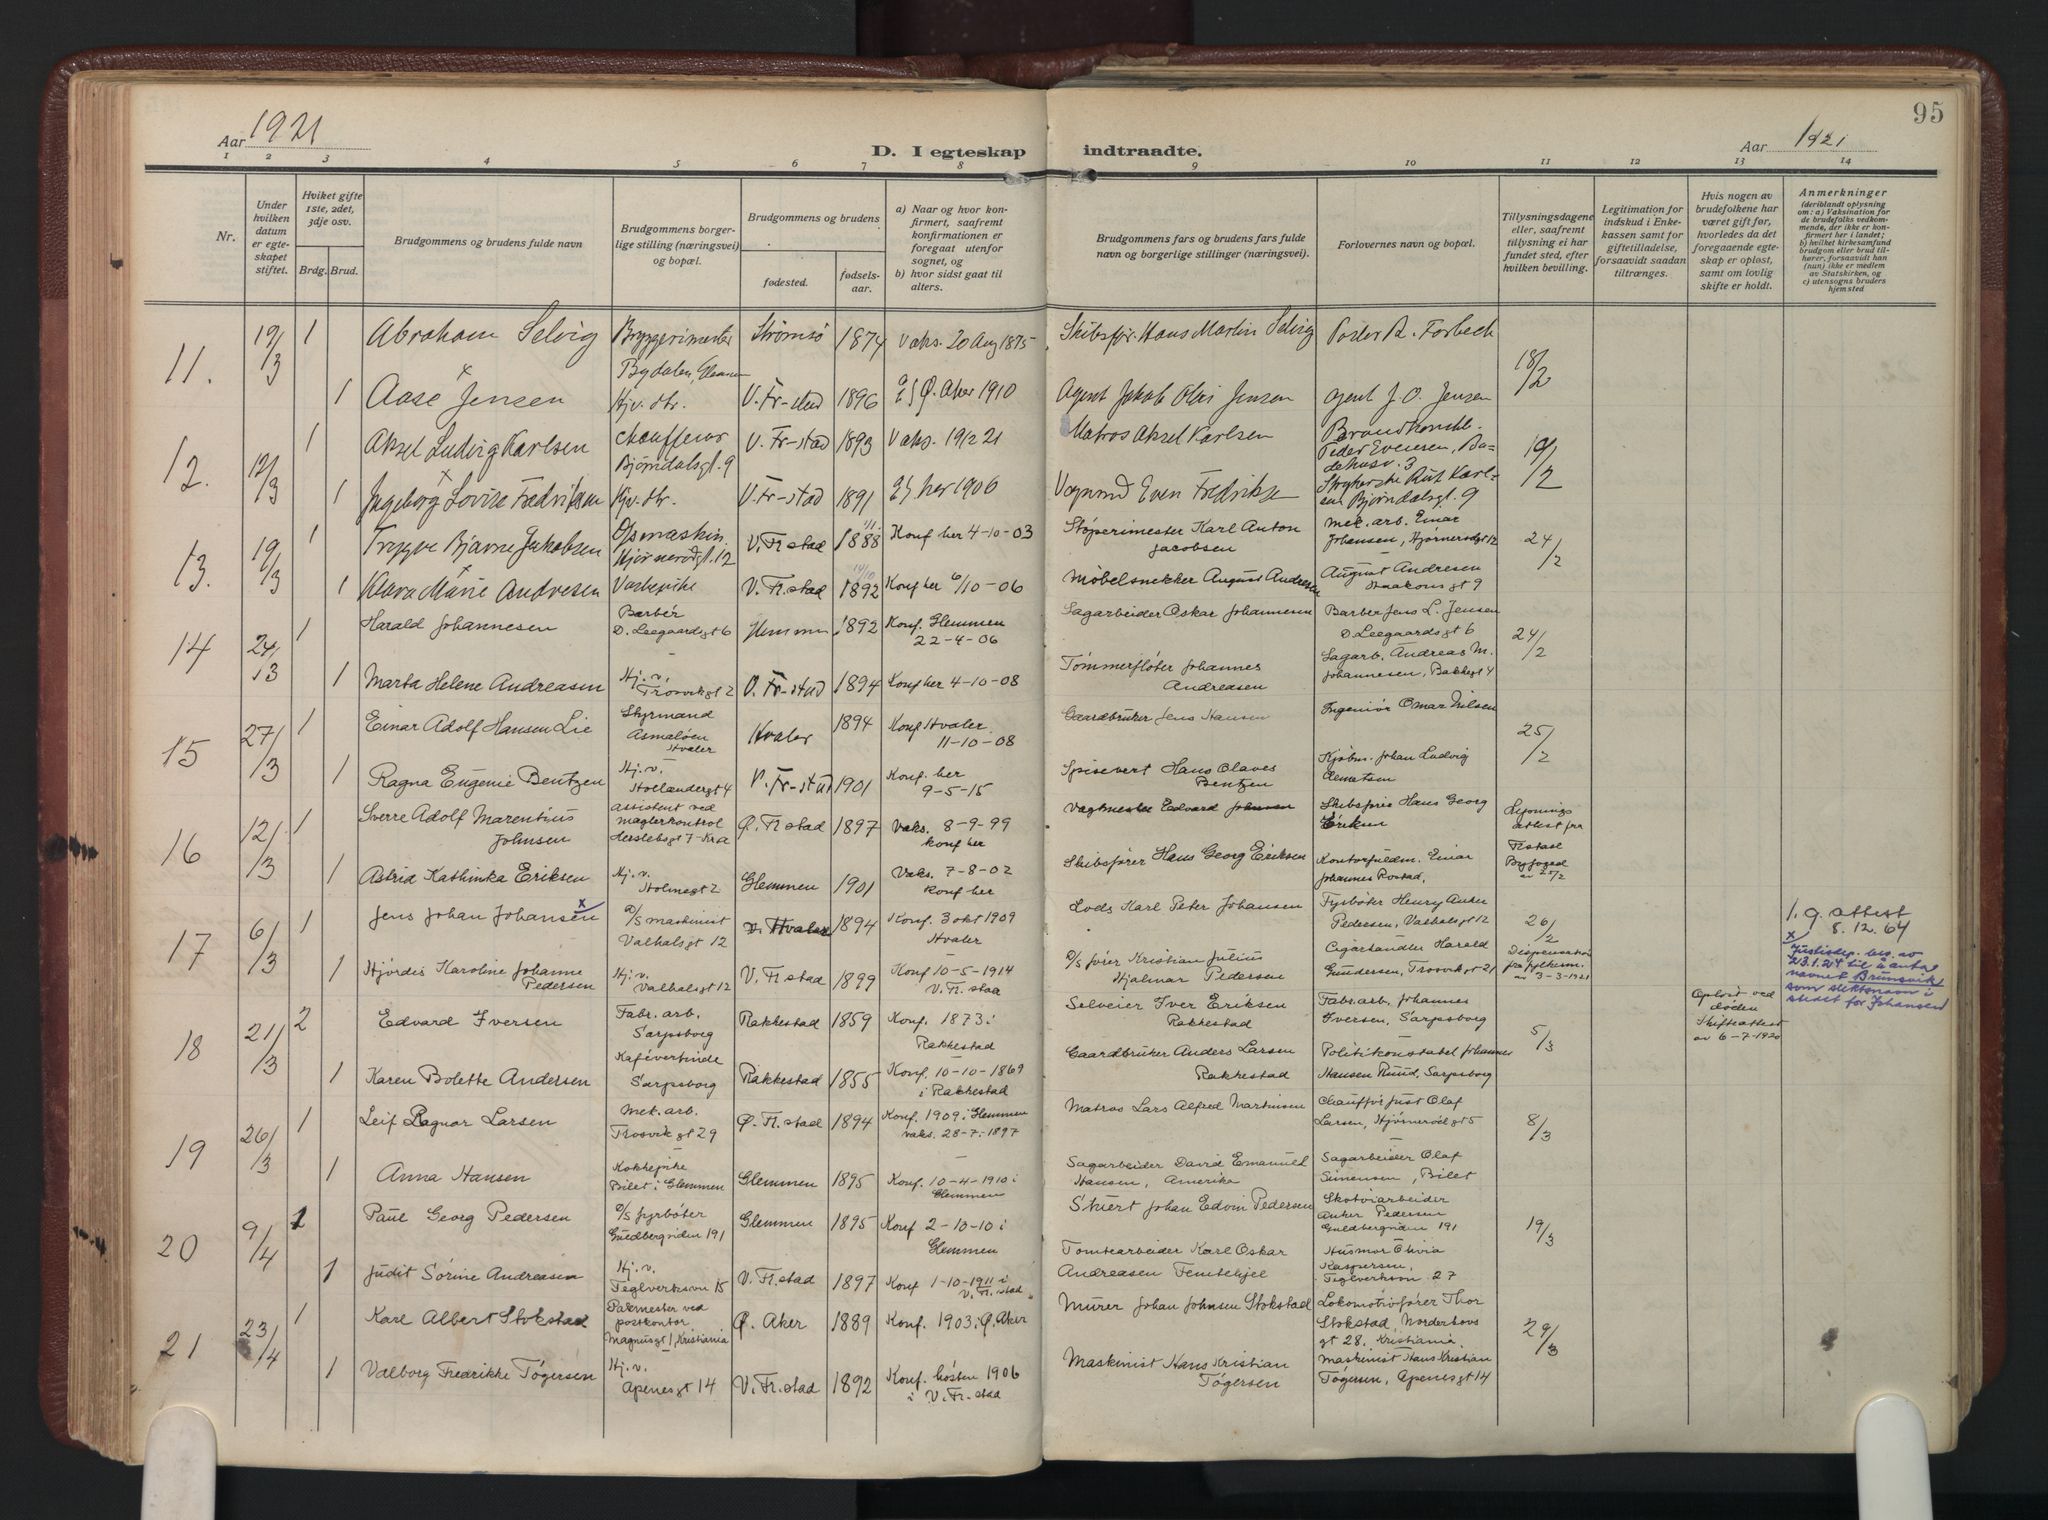 95
Aar 1921
D. I egteskap indtraadte.
Aar 1921
1 2 3 4 5 6 7 8 9 10 11 12 13 14
Nr.
Under hvilken datum er egteskapet stiftet.
Hviket gifte 1ste, 2det, 3dje osv.
Brdg. Brud.
Brudgommens og brudens fulde navn
Brudgommens borgerlige stilling (næringsvei) og bopæl.
Brudgommens og brudens
fødested.
fødselsaar.
a) Naar og hvor konfirmert, saafremt konfirmationen er foregaat utenfor sognet, og
b) hvor sidst gaat til alters.
Brudgommens fars og brudens fars fulde navn og borgerlige stillinger (næringsvei).
Forlovernes navn og bopæl.
Tillysningsdagene eller, saafremt tillysning ei har fundet sted, efter hvilken bevilling.
Legitimation for indskud i Enkekassen samt for giftetilladelse, forsaavidt saadan tiltrænges.
Hvis nogen av brudefolkene har været gift før, hvorledes da det foregaaende egteskap er opløst, samt om lovlig skifte er holdt.
Anmerkninger
(deriblandt oplysning om: a) Vaksination for de brudefolks vedkommende, der ikke er konfirmert her i landet; b) hvilket kirkesamfund brudgom eller brud tilhører, forsaavidt han (hun) ikke er medlem av Statskirken, og c) utensogns bruders hjemsted
11. 19/3 1 Abraham Selvig Bryggerimester Bydalen, Glemmen Strømsø 1874 Vaks. 20 Aug 1875 Skibsfør. Hans Martin Selvig A. Forbech 18/2
1 Aase Jensen Hjv. dtr. V. Fr-stad 1896 Ø. Aker 1910 Agent Jakob Olai Jensen Agent J. O. Jensen
12. 12/3 1 Aksel Ludvig Karlsen Chauffeur Bjørndalsgt. 9 V. Fr-stad 1893 Vaks. Matros Aksel Karlsen Peder Evensen, Badehusv. 3 19/2
1 Ingeborg Lovise Fredriksen Hjv. dtr. V. Fr-stad 1891 her 1906 Even Fredriksen Rut Karlsen Bjørndalsgt. 9
13. 19/3 1 Trygve Bjarne Jakobsen 12 V. Fr.stad 1888 Konf her 4-10-03 Støperimester Karl Anton Jacobsen Mek. arb. Einar Johansen, 12 24/2
1 Klara Marie Andresen V. Fr.stad 14/10 1892 Konf her 6/10-06 Møbelsnekker August Andresen August Andresen Haakonsgt 9
14 24/3 1 Harald Johannesen Barbér D. Leegaardsgt 6 Glemmen 1892 Konf. Glemmen 22-4-06 Sagarbeider Oskar Johannesen Barber Jens L. Jensen D. Leegaardsgt 6 24/2
1 Marta Helene Andreasen Hj. v. Trosvikgt 2 V. Fr-stad 1894 Konf her 4-10-08 Tømmerfløter Johannes Andreasen Sagarb. Andreas M. Johannesen, Bakkegt 4
15 27/3 1 Einar Adolf Hansen Lie Styrmand Asmaløen Hvaler Hvaler 1894 Konf Hvaler 11-10-08 Gaardbruker Jens Hansen Ingeniør Omar Nilsen 25/2
1 Ragna Eugenie Bentzen Hj. v. Hollændergt 4 V. Fr-stad 1901 Konf. her 9-5-15 Spisevert Hans Olaves Bentzen Kjøbm. Johan Ludvig Clemetsen
16 12/3 1 Sverre Adolf Marentius Johnsen Assistent ved maglerkontrol Herslebsgt 7 - Kra Ø. Fr.stad 1897 Vaks. 8-9-99 konf her Vagtmester Edvard Johnsen Skibsfører Hans Georg Eriksen Lysningsattest fra Fr.stad Byfoged av 25/2
1 Astrid Kathinka Eriksen Hj. v. Holmegt 2 Glemmen 1901 Vaks. 7-8-02 konf her Skibsfører Hans Georg Eriksen Kontorfuldm. Einar Johannes Rostad.
17 6/3 1 Jens Johan Johansen x D/S maskinist Valhalsgt 12 Hvaler 1894 Konf. 3 okt 1909 Hvaler Lods Karl Peter Johansen Fyrbøter Henry Anker Pedersen, Valhalsgt 12 26/2
1 Hjørdis Karoline Johanne Pedersen Hj. v. Valhalsgt 12 V. Fr.stad 1899 Konf 10-5-1914 V. Fr. stad D/S fører Kristian Julius Hjalmar Pedersen Cigarhandler Harald Gundersen, Trosvikgt 21 Dispensation fra fylkesm. av 3-3-1921
1. g. attest 8.12.64
x Justisdep. bev. av 23.1.24 til å anta navnet Brunsvik som slektsnavn i stedet for Johansen
18 21/3 2 Edvard Iversen Fabr. arb. Sarpsborg Rakkestad 1859 Konf. 1873 i Rakkestad Selveier Iver Eriksen Rakkestad Fabr. arb. Johannes Iversen, Sarpsborg 5/3 Opløst ved døden Skifteattest av 6-7-1920
1 Karen Bolette Andersen Kafévertinde Sarpsborg Rakkestad 1855 Konf. 10-10-1869 i Rakkestad Gaardbruker Anders Larsen Rakkestad Politikonstabel Johannes Hansen Ruud, Sarpsborg
19 26/3 1 Leif Ragnar Larsen Mek. arb. Trosvikgt 29 Ø. Fr. stad 1894 Konf. 1909 i Glemmen vaks. 28-7-1897 Matros Lars Alfred Martinsen Chauffør Just Olaf Larsen, Hjørnerødgt 5 8/3
1 Anna Hansen Kokkepike Bilet i Glemmen Glemmen 1895 Konf. 10-4-1910 i Glemmen Sagarbeider David Emanuel Hansen, Amerika Sagarbeider Olaf Simensen, Bilet
20 9/4 1 Paul Georg Pedersen D/S fyrbøter Guldbergsiden 191 Glemmen 1895 Konf 2-10-10 i Glemmen Stuert Johan Edvin Pedersen Skotøiarbeider Anker Pedersen Guldbergsiden 191 19/3
1 Judit Sørine Andreasen Hj. v. Teglverksvn 15 V. Fr. stad 1897 Konf 1-10-1911 i V. Fr. stad Tomtearbeider Karl Oskar Andreasen Femtehjel Husmor Olivia Kaspersen, Teglverksvn 27
21 23/4 1 Karl Albert Stokstad Pakmester ved postkontor Magnusgt 1, Kristiania Ø. Aker 1889 Konf. 1903 i Ø. Aker Murer Johan Johnsen Stokstad Lokomotivfører Thor Stokstad, Norderhovsgt 28, Kristiania 29/3
1 Valborg Fredrikke Tøgersen Hj. v. Apenesgt 14 V. Fr. stad 1892 Konf. høsten 1906 i V. Fr. stad Maskinist Hans Kristian Tøgersen Maskinist Hans Kristian Tøgersen, Apenesgt 14